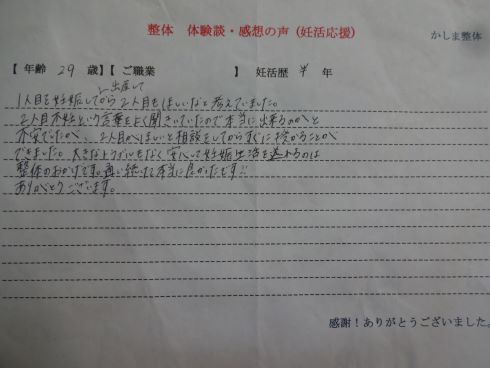 整体 体験談・感想の声（妊活応援）
かしま整体
【 年齢 29 歳】【 ご職業 】 妊活歴 半 年
出産して
1人目を妊娠してから2人目もほしいなと考えていました。
2人目不妊という言葉をよく聞きていたので本当に出来るのかと
不安でしたが、2人目がほしいと相談をしてからすぐに授かることが
できました。大きなトラブルもなく安心して妊娠生活を送れるのは
整体のおかげです。通い続けて本当に良かったです!!
ありがとうございます。
感謝！ありがとうございました。